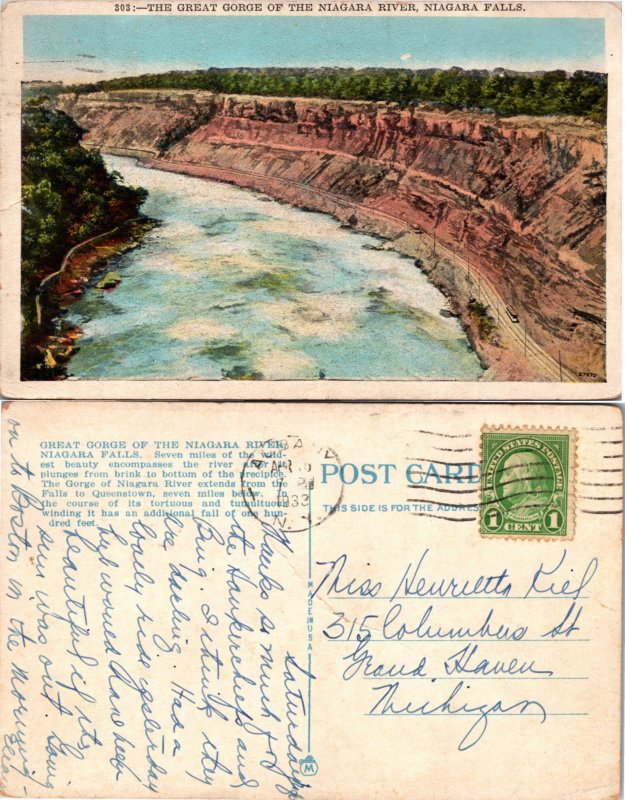 303:—THE GREAT GORGE OF THE NIAGARA RIVER, NIAGARA FALLS.
GREAT GORGE OF THE NIAGARA RIVER,
NIAGARA FALLS. Seven miles of the wild-
est beauty encompasses the river after it
plunges from brink to bottom of the precipice.
The Gorge of Niagara River extends from the
Falls to Queenstown, seven miles below. In
the course of its tortuous and tumultuous
winding it has an additional fall of one hun-
dred feet.
APR
1933
N. Y.
POST CARD
THIS SIDE IS FOR THE ADDRESS
UNITED STATES POSTAGE
1 1
CENT
MADE IN USA
M
Miss Henrietta Kiel
315 Columbus St
Grand Haven
Michigan
Saturday
Thanks so much for
the Hankerchiefs and
Bing. I think they
are darling. Had a
lovely ride yesterday
but would have been
beautiful if its
sun was out. Going
on to Boston in the morning-